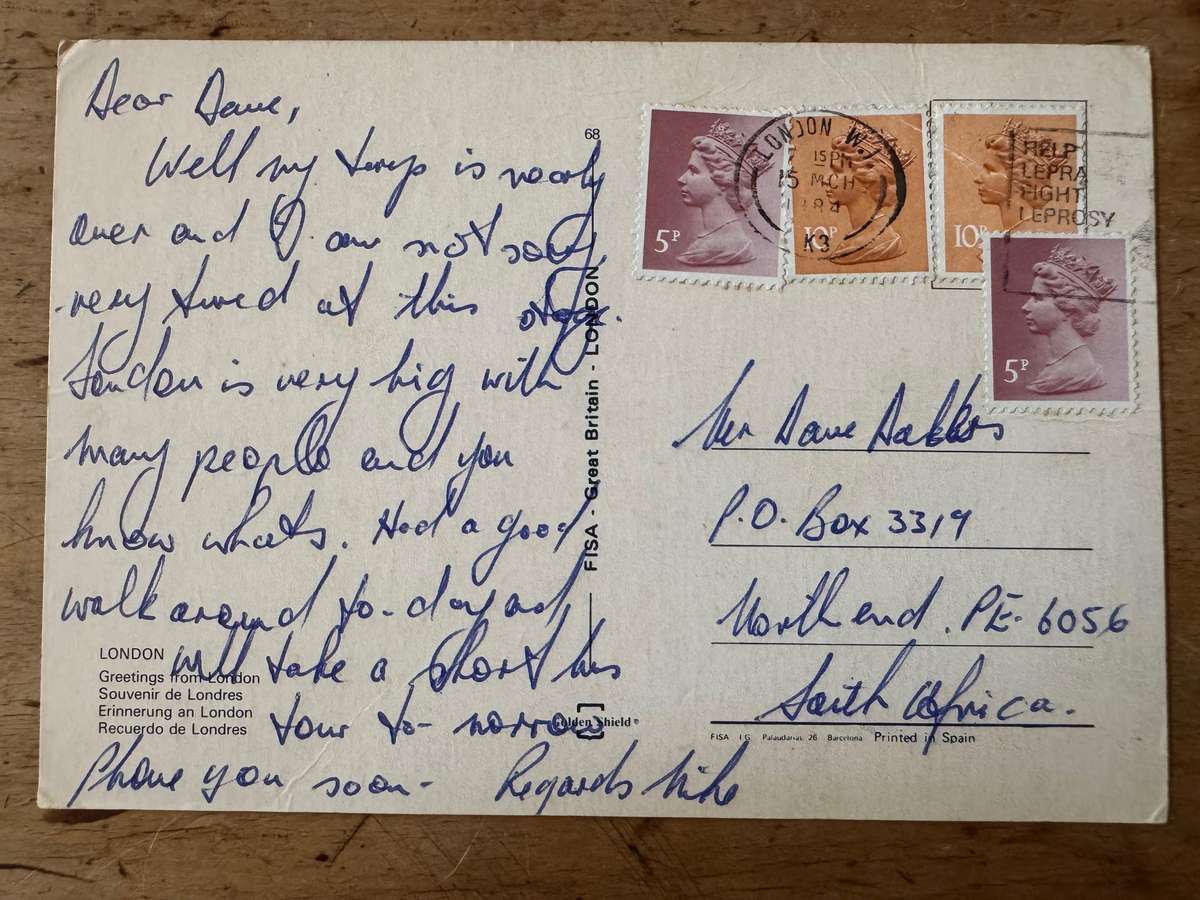 Dear Dave,
Well my trip is nearly
over and I am not sorry,
very tired at this stage.
London is very big with
many people and you
know whats. Had a good
walk around to-day and
will take a short bus
tour to-morrow
Phone you soon- Regards Mike
LONDON
Greetings from London
Souvenir de Londres
Erinnerung an London
Recuerdo de Londres
68
FISA - Great Britain - LONDON
Golden Shield
5P
10P
10P
5P
LONDON W.1
15 PM
15 MCH
1984
K3
HELP
LEPRA
FIGHT
LEPROSY
Mr Dave Dakkers
P.O. Box 3319
North end. PE. 6056
South Africa.
FISA I.G. Palaudarias, 26 Barcelona Printed in Spain